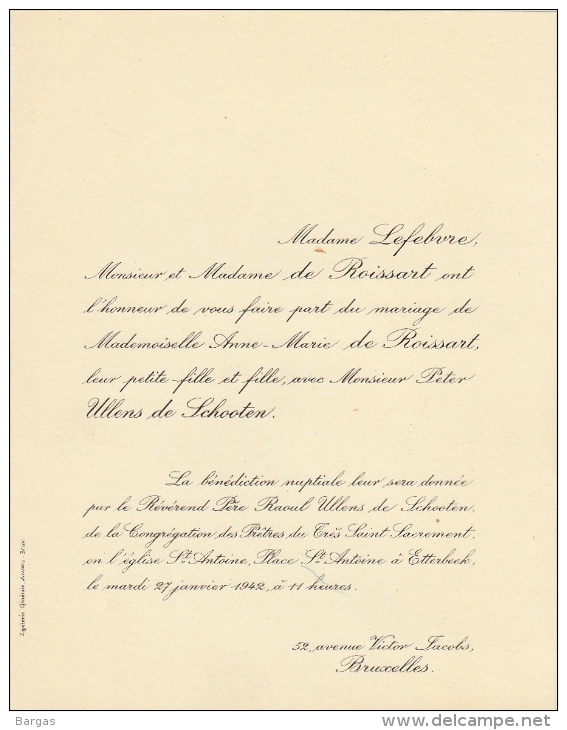 Madame Lefebvre,
Monsieur et Madame de Roissart ont
l'honneur de vous faire part du mariage de
Mademoiselle Anne-Marie de Roissart,
leur petite-fille et fille, avec Monsieur Peter
Ullens de Schooten.
La bénédiction nuptiale leur sera donnée
par le Révérend Père Raoul Ullens de Schooten,
de la Congrégation des Prêtres du Très Saint Sacrement,
en l'église St. Antoine, Place St. Antoine à Etterbeek,
le mardi 27 janvier 1942, à 11 heures.
52, avenue Victor Jacobs,
Bruxelles.
Papeterie Générale,
Bargas
www.delcampe.net